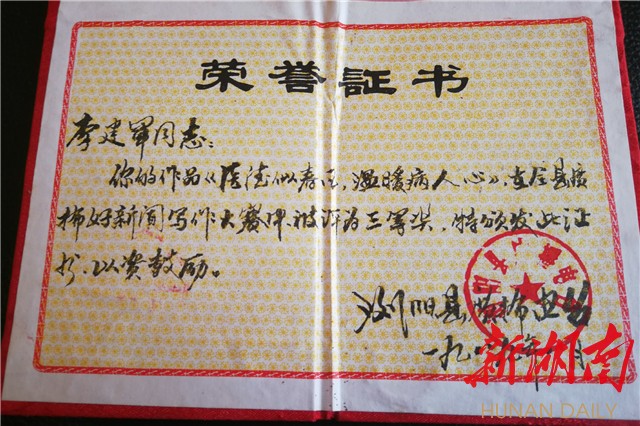 荣誉证书
李建军同志：
你的作品《医德似春风，温暖病人心》，在全县广
播好新闻写作大赛中，被评为三等奖，特颁发此证
书，以资鼓励。
浏阳县广播电台
一九八
新湖南
HUNAN DAILY